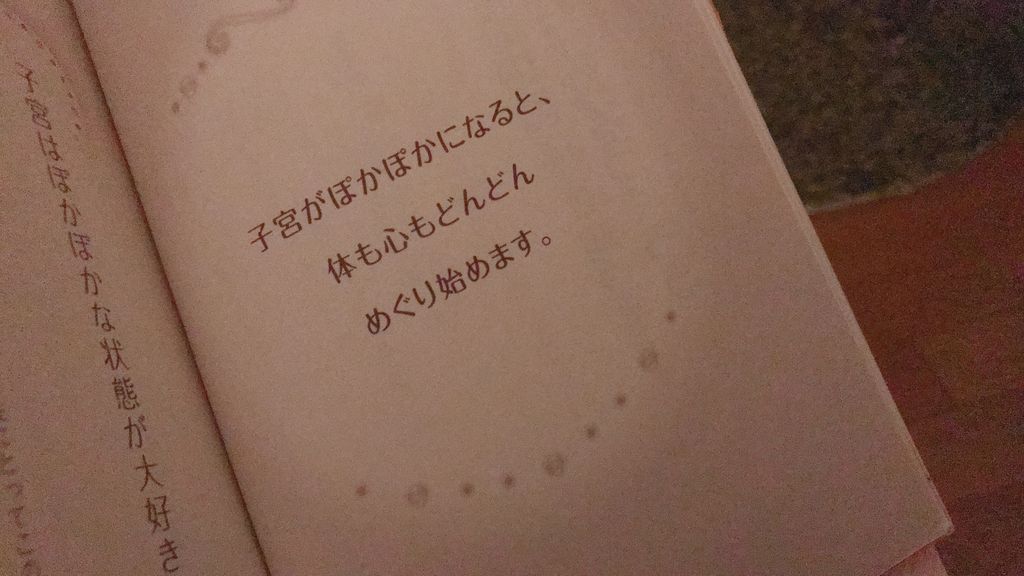 子宮がぽかぽかになると、
体も心もどんどん
めぐり始めます。
子宮はぽかぽかな状態が大好き